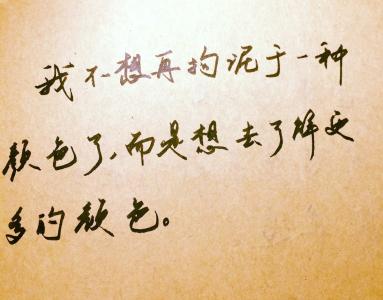 我不想再拘泥于一种
颜色了，而是想去了解更
多的颜色。